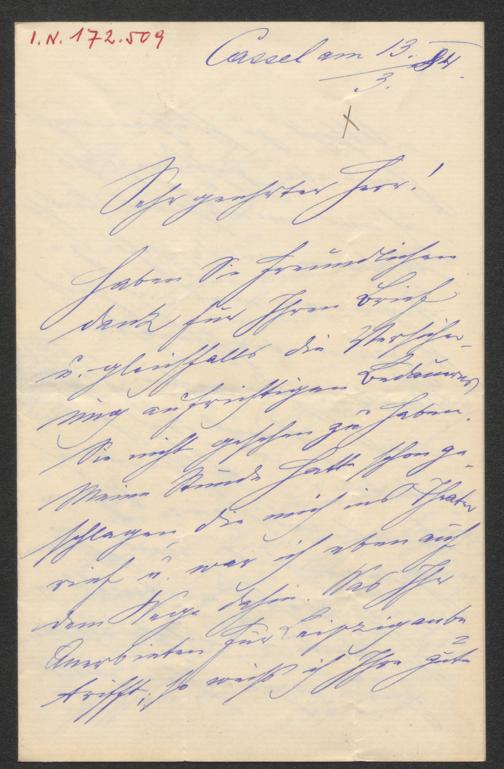 I.N. 172.509
Cassel am 13. 84.
3.
Sehr geehrter Herr!
Haben Sie freundlichen
dank für Ihren Brief
u. gleichfalls die Versiche-
rung aufrichtigen Bedauerns
Sie nicht gesehen zu haben.
Meine Stunde hatte schon ge-
schlagen, die mich ins Theater
rief u. war ich eben auf
dem Wege dahin. Was Ihr
Anerbieten für Leipzig anbe
trifft, so weiß ich Ihre güte